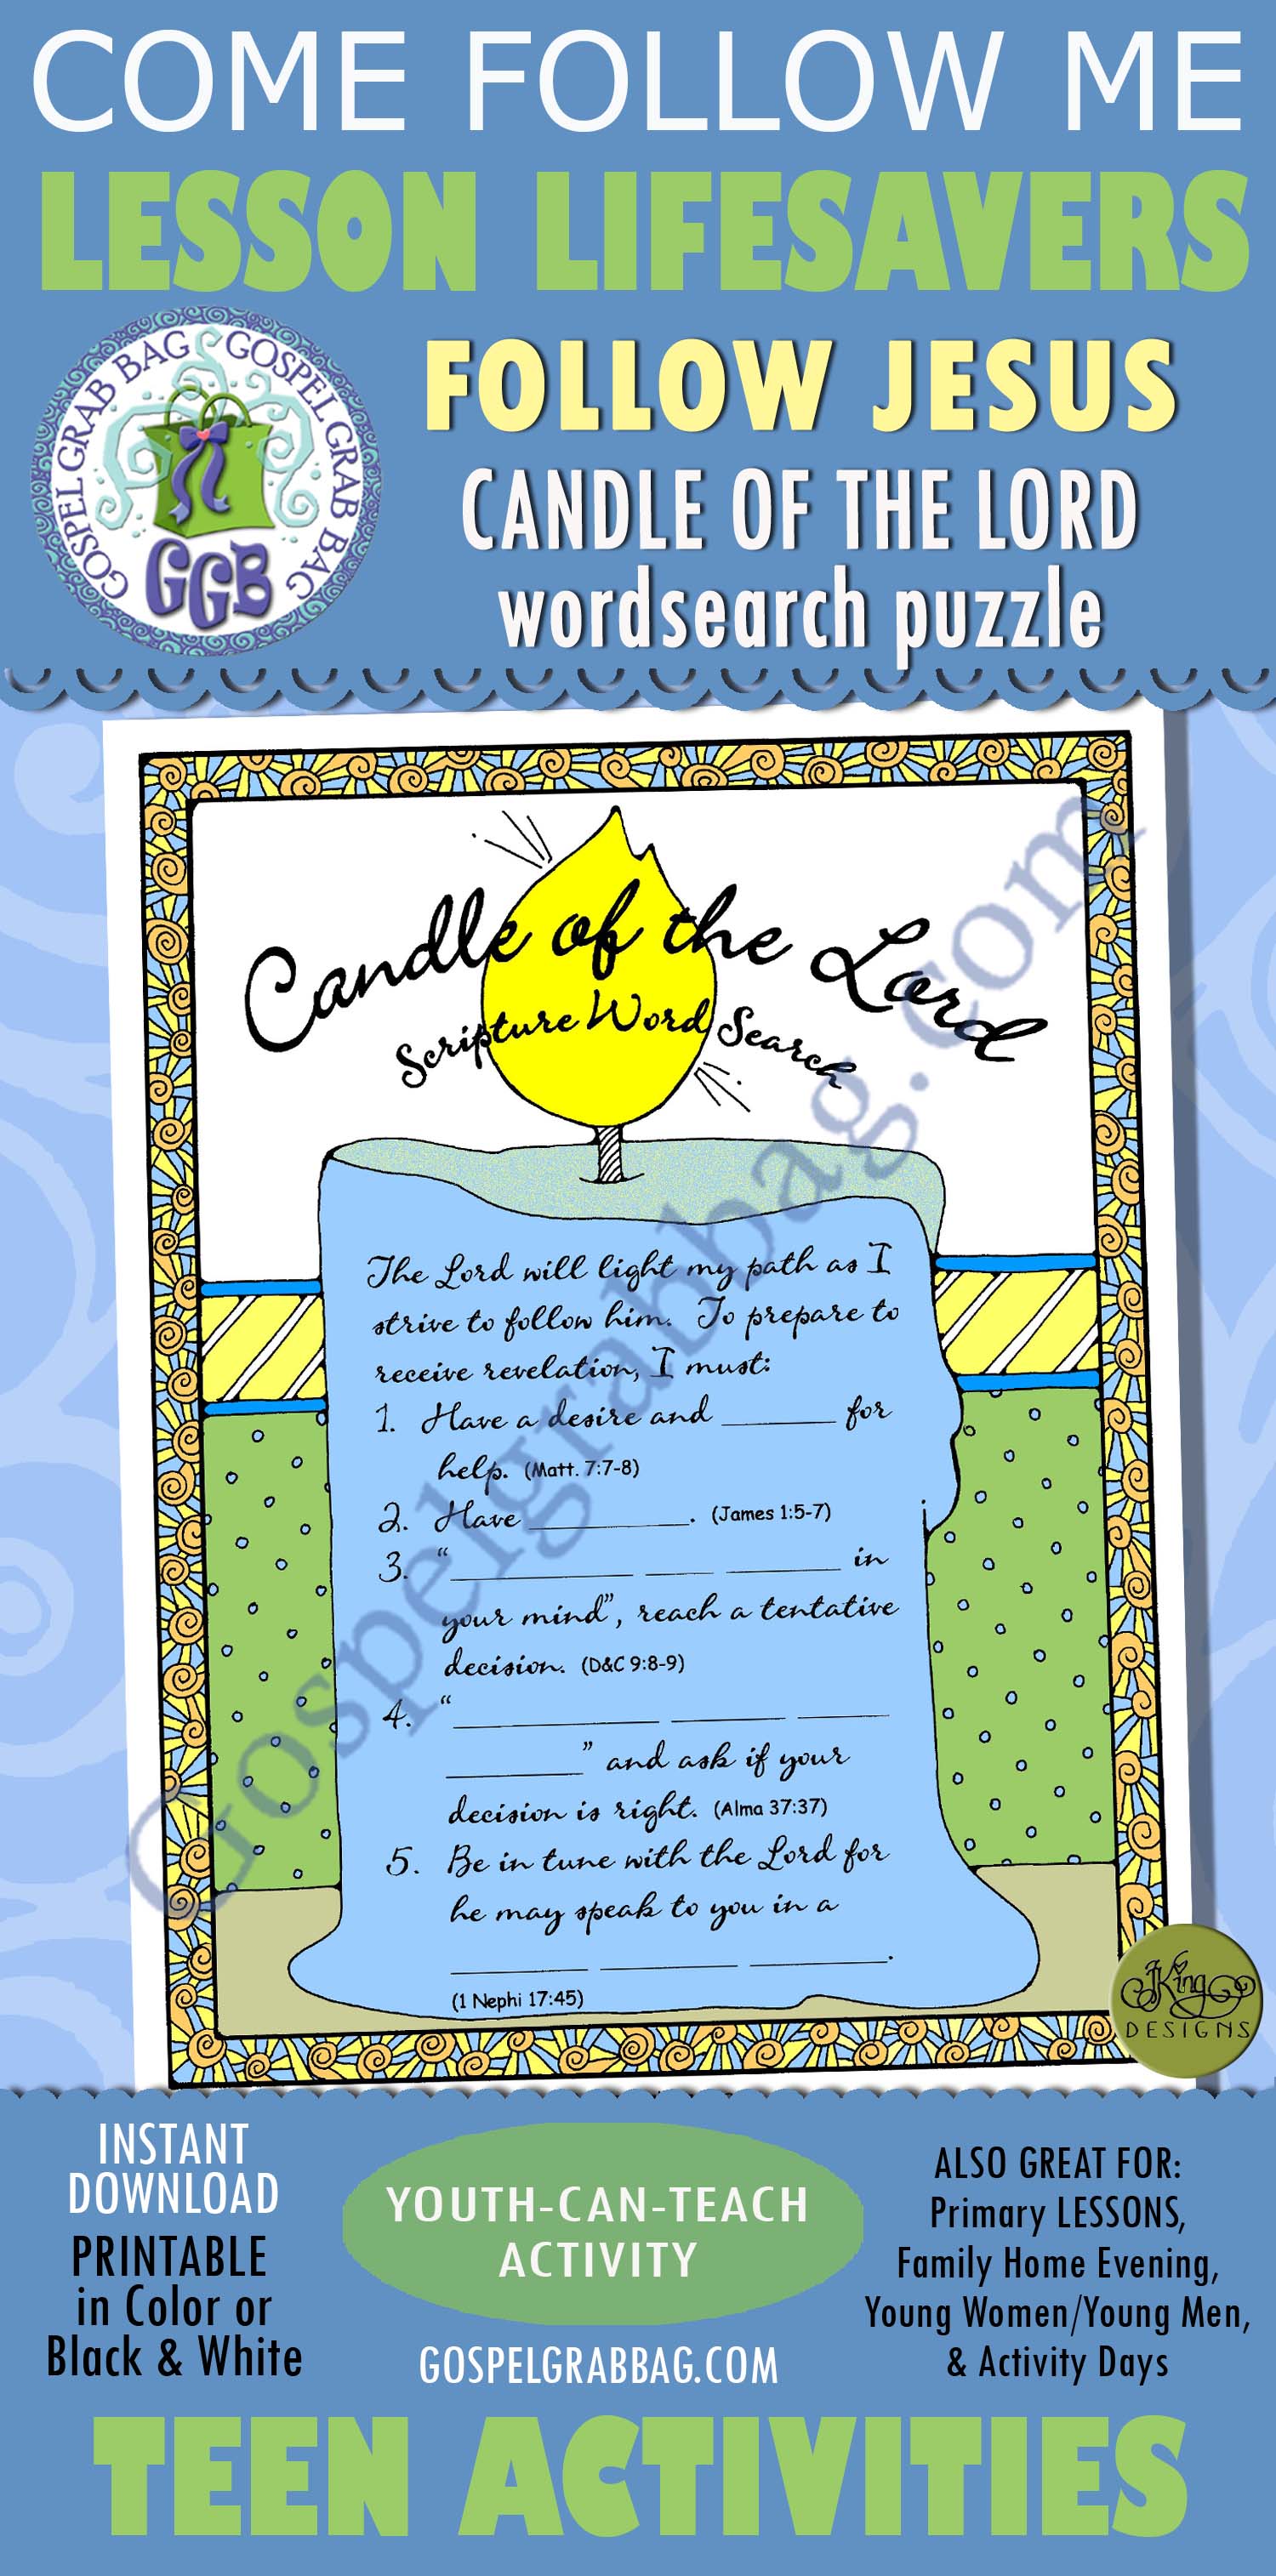 COME FOLLOW ME
LESSON LIFESAVERS
GOSPEL GRAB BAG GOSPEL GRAB BAG
GGB
FOLLOW JESUS
CANDLE OF THE LORD
wordsearch puzzle
Candle of the Lord
Scripture Word Search
The Lord will light my path as I
strive to follow him. To prepare to
receive revelation, I must:
1. Have a desire and ________ for
help. (Matt. 7:7-8)
2. Have ____________. (James 1:5-7)
3. “____________ _____ ________ in
your mind”, reach a tentative
decision. (D&C 9:8-9)
4. “______________ ________ ______
__________” and ask if your
decision is right. (Alma 37:37)
5. Be in tune with the Lord for
he may speak to you in a
__________ __________ __________.
(1 Nephi 17:45)
Gospelgrabbag.com
JKing
DESIGNS
INSTANT
DOWNLOAD
PRINTABLE
in Color or
Black & White
YOUTH-CAN-TEACH
ACTIVITY
GOSPELGRABBAG.COM
ALSO GREAT FOR:
Primary LESSONS,
Family Home Evening,
Young Women/Young Men,
& Activity Days
TEEN ACTIVITIES